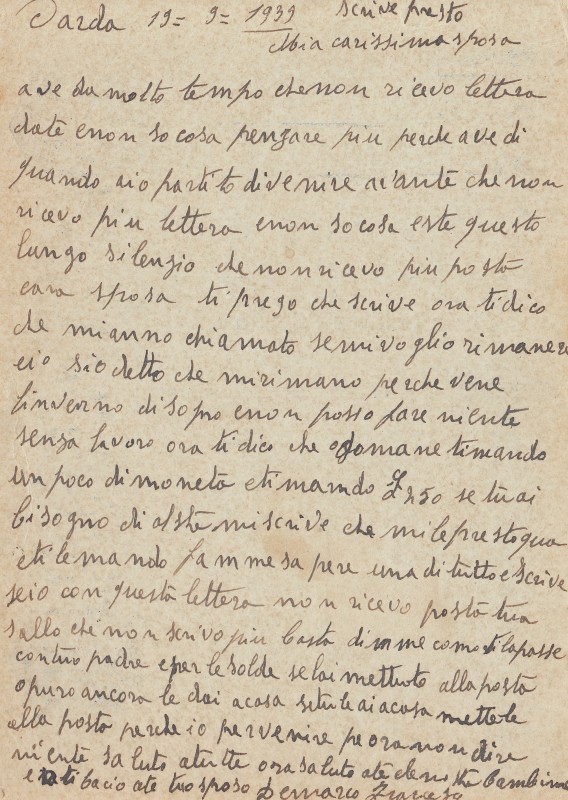 Darda 19= 9= 1939 scrive presto
Mia carissima sposa
ave da molto tempo che non ricevo lettera
date e non so cosa penzare piu perche ave di
quando aio partito di venire avante che non
ricevo piu lettera e non so cosa este questo
lungo silenzio che non ricevo piu posta
cara sposa ti prego che scrive ora ti dico
che mi anno chiamato se mi voglio rimanere
e io sio detto che mi rimano perche vene
linverno di sopro e non posso fare niente
senza lavoro ora ti dico che domane ti mando
un poco di moneta e ti mando £ 250 se tu ai
bisogno di mi scrive che mi le presto qua
e ti le mando fammesapere una di tutto e scrive
seio con questa lettera non ricevo posta tua
sallo che non scrivo piu basta dimme como ti la passe
con tuo padre e per le solde se lai mettuto alla posta
opuro ancora le dai a casa si tu le ai a casa mettele
alla posta perche io per venire pe ora non dire
niente saluto a tutte ora saluto a te bambine
e ti bacio a te tuo sposo Demarco